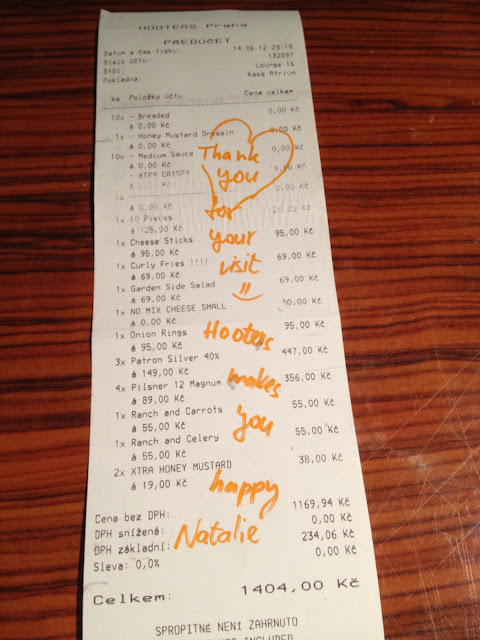 HOOTERS Praha
PŘEDÚČET
Datum a čas tisku: 14.06.12 23:18
Číslo účtu: 132897
Stůl: Lounge 16
Pokladna: Kasa Atrium
ks Položky účtu Cena celkem
10x - Breaded 0,00 Kč
á 0,00 Kč
1x - Honey Mustard Dressin 0,00 Kč
á 0,00 Kč
10x - Medium Sauce 0,00 Kč
á 0,00 Kč
- XTRA CRISPY 0,00 Kč
1x 0,00 Kč
á 0,00 Kč
1x 10 Pieces
á 125,00 Kč
1x Cheese Sticks 95,00 Kč
á 95,00 Kč
1x Curly Fries !!!! 69,00 Kč
á 69,00 Kč
1x Garden Side Salad 69,00 Kč
á 69,00 Kč
1x NO MIX CHEESE SMALL 0,00 Kč
á 0,00 Kč
1x Onion Rings 95,00 Kč
á 95,00 Kč
3x Patron Silver 40% 447,00 Kč
á 149,00 Kč
4x Pilsner 12 Magnum 356,00 Kč
á 89,00 Kč
1x Ranch and Carrots 55,00 Kč
á 55,00 Kč
1x Ranch and Celery 55,00 Kč
á 55,00 Kč
2x XTRA HONEY MUSTARD 38,00 Kč
á 19,00 Kč
Cena bez DPH: 1169,94 Kč
DPH snížená: 0,00 Kč
DPH základní: 234,06 Kč
Sleva: 0,0% 0,00 Kč
Celkem: 1404,00 Kč
SPROPITNÉ NENÍ ZAHRNUTO
NOT INCLUDED
Thank
you
for
your
visit
Hooters
makes
you
happy
Natalie